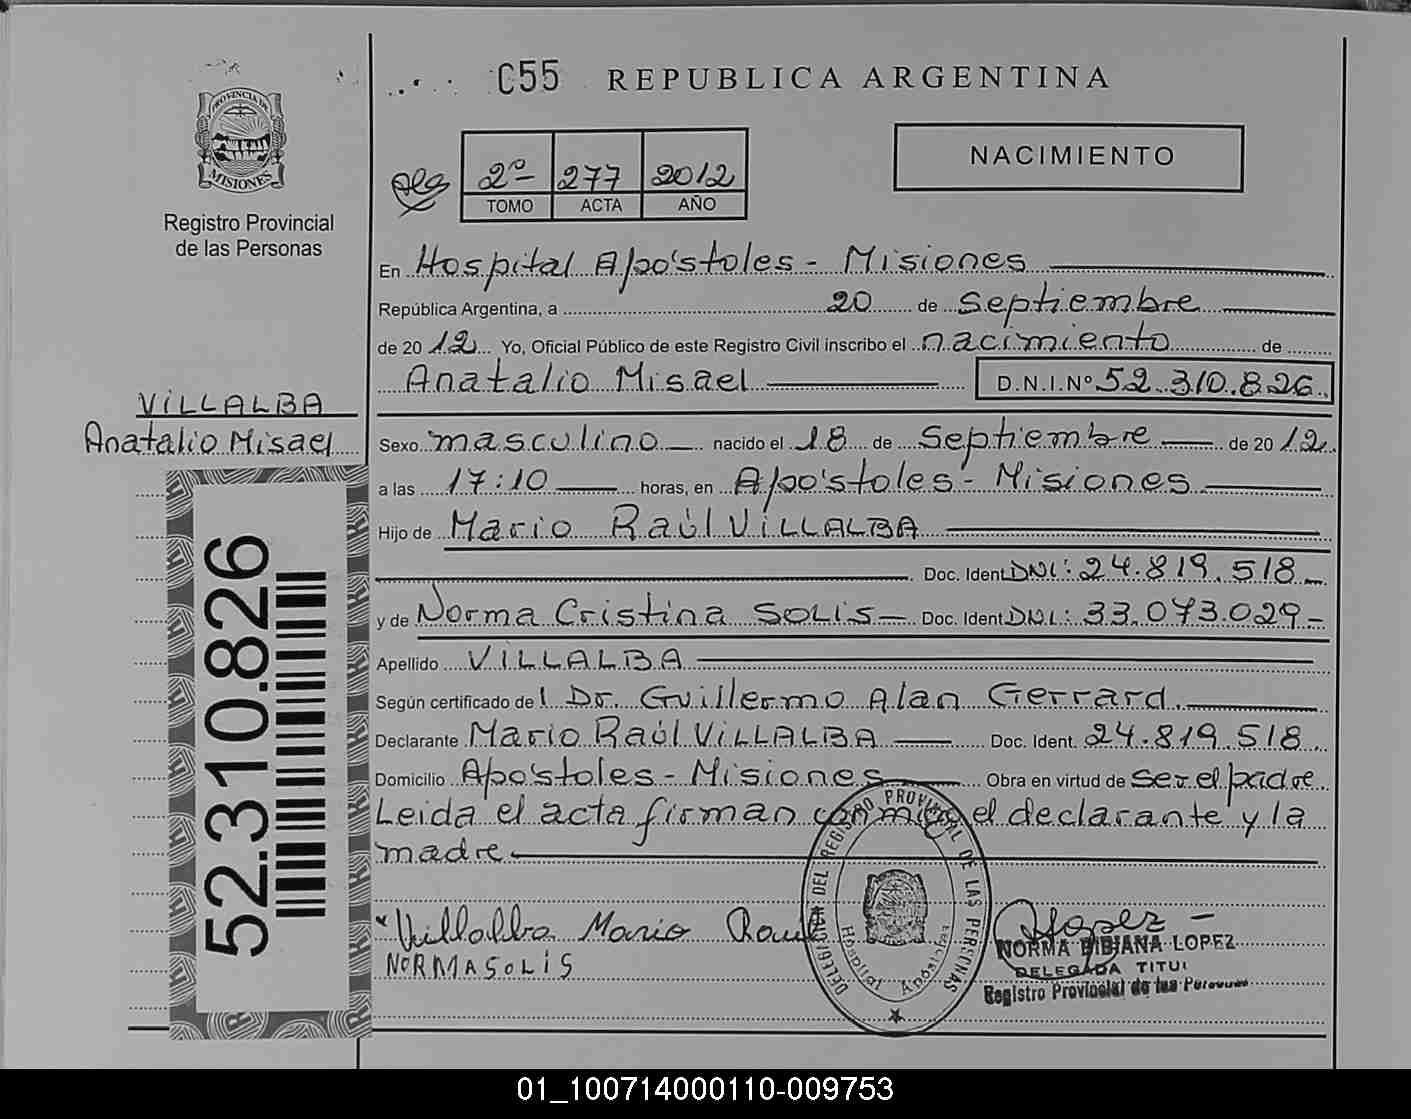 C55 REPUBLICA ARGENTINA
PROVINCIA DE
MISIONES
Registro Provincial
de las Personas
NACIMIENTO
2º 277 2012
TOMO ACTA AÑO
En Hospital Apóstoles - Misiones
República Argentina, a 20 de Septiembre
de 2012 Yo, Oficial Público de este Registro Civil inscribo el nacimiento de
Anatalio Misael D.N.I.Nº 52.310.826
VILLALBA
Anatalio Misael
Sexo masculino nacido el 18 de Septiembre de 2012
a las 17:10 horas, en Apóstoles - Misiones
Hijo de Mario Raúl VILLALBA
Doc. Ident DNI: 24.819.518
y de Norma Cristina SOLIS Doc. Ident DNI: 33.073.029
Apellido VILLALBA
Según certificado del Dr. Guillermo Alan Gerrard
Declarante Mario Raúl VILLALBA Doc. Ident. 24.819.518
Domicilio Apóstoles - Misiones Obra en virtud de ser el padre
Leida el acta firman conmigo el declarante y la
madre
52.310.826
Villalba Mario Raul
NORMA SOLIS
DELEGACION DEL REGISTRO PROVINCIAL DE LAS PERSONAS
Hospital Apóstoles
NORMA BIBIANA LOPEZ
DELEGADA TITUL
Registro Provincial de las Personas
01_100714000110-009753